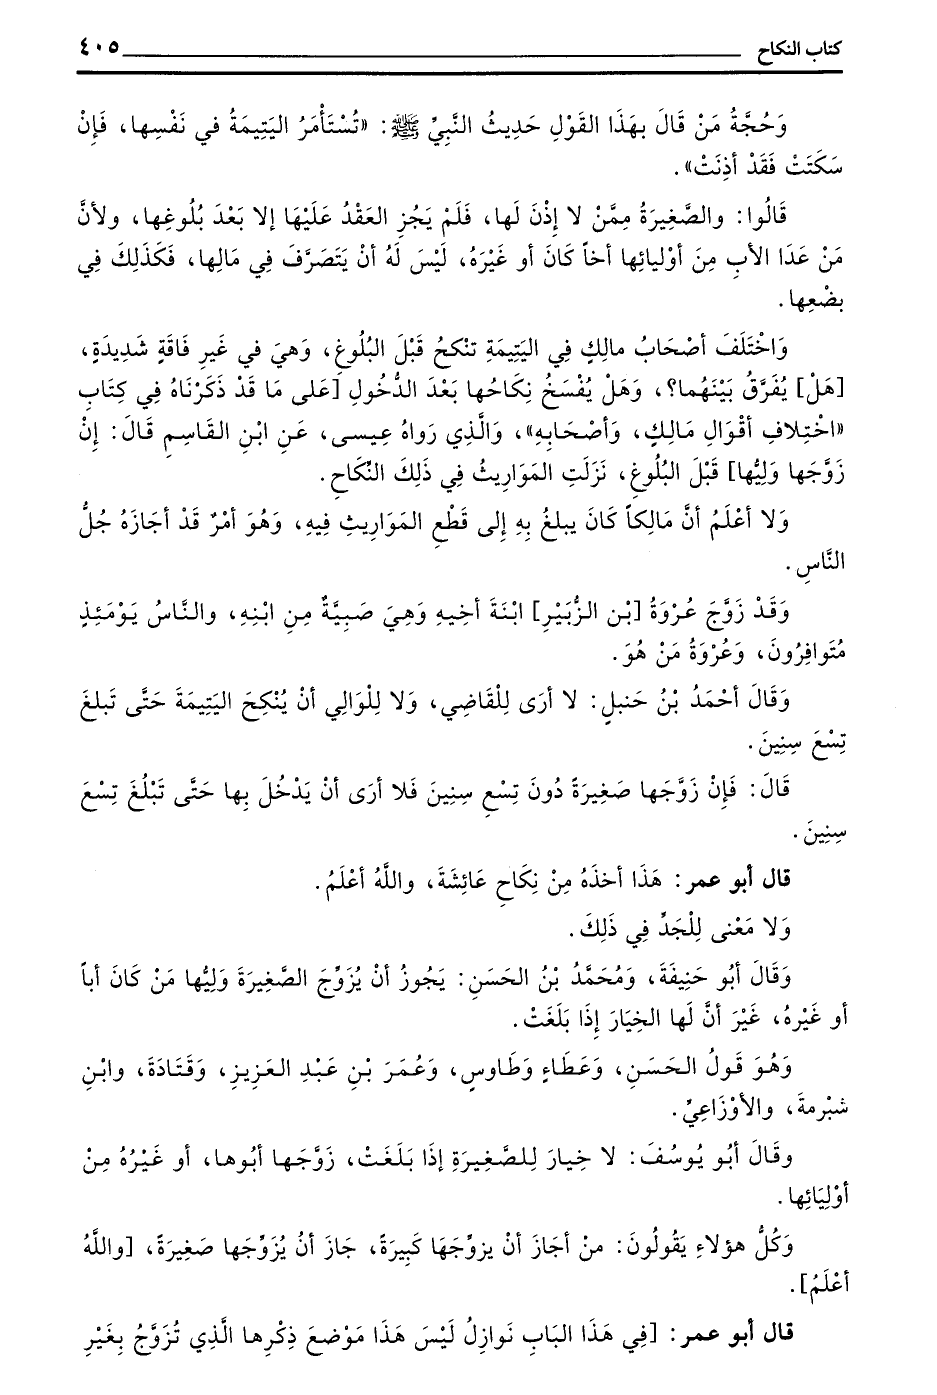 كتاب النكاح ٤٠٥
وَحُجَّةُ مَنْ قَالَ بِهَذَا القَوْلِ حَدِيثُ النَّبِيِّ ﷺ: «تُسْتَأْمَرُ اليَتِيمَةُ في نَفْسِها، فَإِنْ
سَكَتَتْ فَقَدْ أذِنَتْ».
قَالُوا: والصَّغِيرَةُ مِمَّنْ لا إِذْنَ لَها، فَلَمْ يَجُزِ العَقْدُ عَلَيْهَا إلا بَعْدَ بُلُوغِها، ولأنَّ
مَنْ عَدَا الأبِ مِنَ أوْليائِها أخاً كَانَ أو غَيْرَهُ، لَيْسَ لَهُ أنْ يَتَصَرَّفَ فِي مَالِها، فَكَذَلِكَ فِي
بضْعِها.
وَاخْتَلَفَ أصْحَابُ مالِكٍ فِي اليَتِيمَةِ تنْكحُ قَبْلَ البُلُوغِ، وَهيَ في غَيرِ فَاقَةٍ شَدِيدَةٍ،
[هَلْ] يُفَرَّقُ بَيْنَهُما؟، وَهَلْ يُفْسَخُ نِكَاحُها بَعْدَ الدُّخُولِ [عَلى مَا قَدْ ذَكَرْنَاهُ فِي كِتَابِ
«اخْتِلافِ أقْوَالِ مَالِكٍ، وَأصْحَابِهِ»، وَالَّذِي رَواهُ عِيسى، عَنِ ابْنِ القَاسِمِ قَالَ: إِنْ
زَوَّجَها وَلِيُّها] قَبْلَ البُلُوغِ، نَزَلَتِ المَوَارِيثُ فِي ذَلِكَ النِّكَاحِ.
وَلا أعْلَمُ أنَّ مَالِكاً كَانَ يبلغُ بِهِ إِلى قَطْعِ المَوَارِيثِ فِيهِ، وَهُوَ أمْرٌ قَدْ أجَازَهُ جُلُّ
النَّاسِ.
وَقَدْ زَوَّجَ عُرْوَةُ [بْن الزُّبَيْرِ] ابْنَةَ أخِيهِ وَهِيَ صَبِيَّةٌ مِنِ ابْنِهِ، والنَّاسُ يَوْمَئِذٍ
مُتَوافِرُونَ، وَعُرْوَةُ مَنْ هُوَ.
وَقَالَ أحْمَدُ بْنُ حَنبلٍ: لا أرَى لِلْقَاضِي، وَلا لِلْوَالِي أنْ يُنْكِحَ اليَتِيمَةَ حَتَّى تَبلغَ
تِسْعَ سِنِينَ.
قَالَ: فَإِنْ زَوَّجَها صَغِيرَةً دُونَ تِسْعِ سِنِينَ فَلا أرَى أنْ يَدْخُلَ بِها حَتَّى تَبْلُغَ تِسْعَ
سِنِينَ.
قال أبو عمر: هَذَا أخَذَهُ مِنْ نِكَاحِ عَائِشَةَ، واللَّهُ أعْلَمُ.
وَلا مَعْنى لِلْجَدِّ فِي ذَلِكَ.
وَقَالَ أبُو حَنِيفَةَ، وَمُحَمَّدُ بْنُ الحَسَنِ: يَجُوزُ أنْ يُزَوِّجَ الصَّغِيرَةَ وَلِيُّها مَنْ كَانَ أباً
أو غَيْرهُ، غَيْرَ أنَّ لَها الخِيَارَ إِذَا بَلَغَتْ.
وَهُوَ قَولُ الحَسَنِ، وَعَطَاءٍ وَطَاوسٍ، وَعُمَرَ بْنِ عَبْدِ العَزِيزِ، وَقَتَادَةَ، وابْنِ
شبْرمةَ، والأوْزَاعِيِّ.
وقَالَ أبُو يُوسُفَ: لا خِيارَ لِلصَّغِيرَةِ إِذَا بَلَغَتْ، زَوَّجَها أبُوها، أو غَيْرُهُ مِنْ
أوْلِيَائِها.
وَكُلُّ هؤلاءِ يَقُولُونَ: منْ أجَازَ أنْ يزوِّجَهَا كَبِيرَةً، جَازَ أنُ يُزَوِّجَها صَغِيرَةً، [واللَّهُ
أعْلَمُ].
قال أبو عمر: [فِي هَذَا البَابِ نَوازِلُ لَيْسَ هَذَا مَوْضعَ ذِكْرِها الَّذِي تُزَوَّجُ بِغَيْرِ